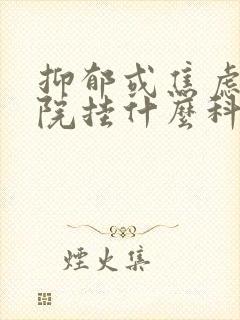 抑郁或焦虑
院挂什麼科
煙火集